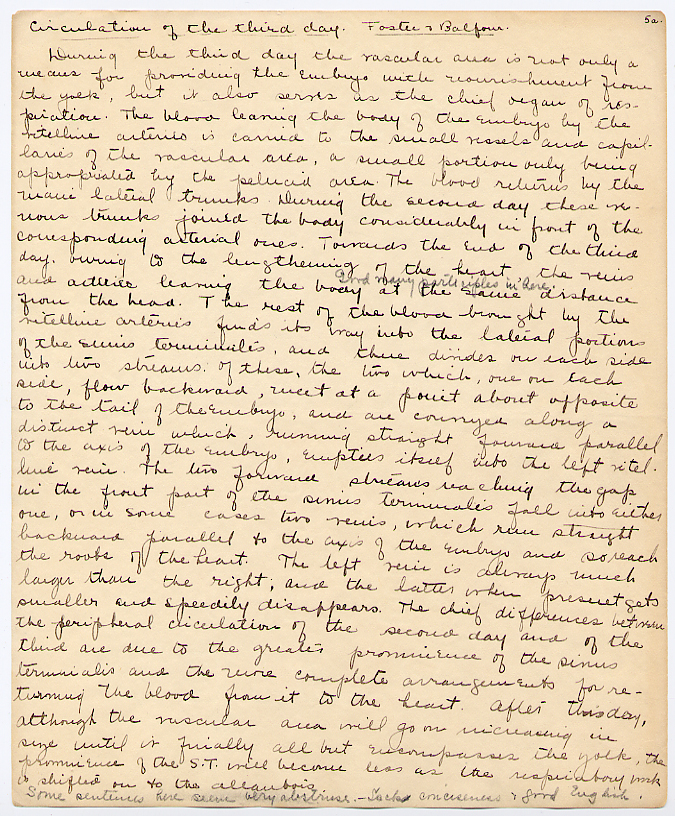 5a.
Circulation of the third day. Foster & Balfour.
During the third day the vascular area is not only a
means for providing the Embryo with nourishment from
the yolk, but it also serves as the chief organ of res-
piration. The blood leaving the body of the Embryo by the
vitelline arteries is carried to the small vessels and capil-
laries of the vascular area, a small portion only being
appropriated by the pelucid area. The blood returns by the
main lateral trunks. During the second day these ve-
nous trunks joined the body considerably in front of the
corresponding arterial ones. Towards the End of the third
day, owing to the lengthening of the heart the veins
Good many participles in here.
and arteries leaving the body at the same distance
from the head. The rest of the blood brought by the
vitelline arteries finds its way into the lateral portions
of the sinus terminalis, and there divides on each side
into two streams. Of these, the two which, one on Each
side, flow backward, meet at a point about opposite
to the tail of the Embryo, and are conveyed along a
distinct vein which, running straight forward parallel
to the axis of the Embryo, Empties itself into the left vitel-
line vein. The two forward streams reaching the gap
in the front part of the sinus terminalis fall into Either
one, or in some cases two veins, which run straight
backward parallel to the axis of the Embryo and so reach
the roots of the heart. The left vein is always much
larger than the right; and the latter when present gets
smaller and speedily disappears. The chief differences between
the peripheral circulation of the second day and of the
third are due to the greater prominence of the sinus
terminalis and the more complete arrangements for re-
turning the blood from it to the heart. After this day,
although the vascular area will go on increasing in
size until it finally all but Encompasses the yolk, the
prominence of the S.T. will become less as the respiratory work
is shifted on to the allantois
Some sentences here seem very abstruse. - Lacks conciseness & good English.